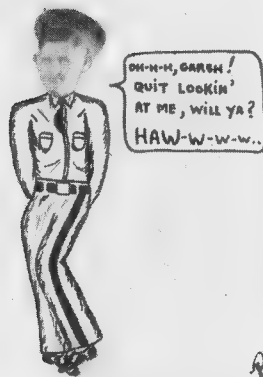 OH-H-H, GARSH!
QUIT LOOKIN'
AT ME, WILL YA?
HAW-W-W-W..